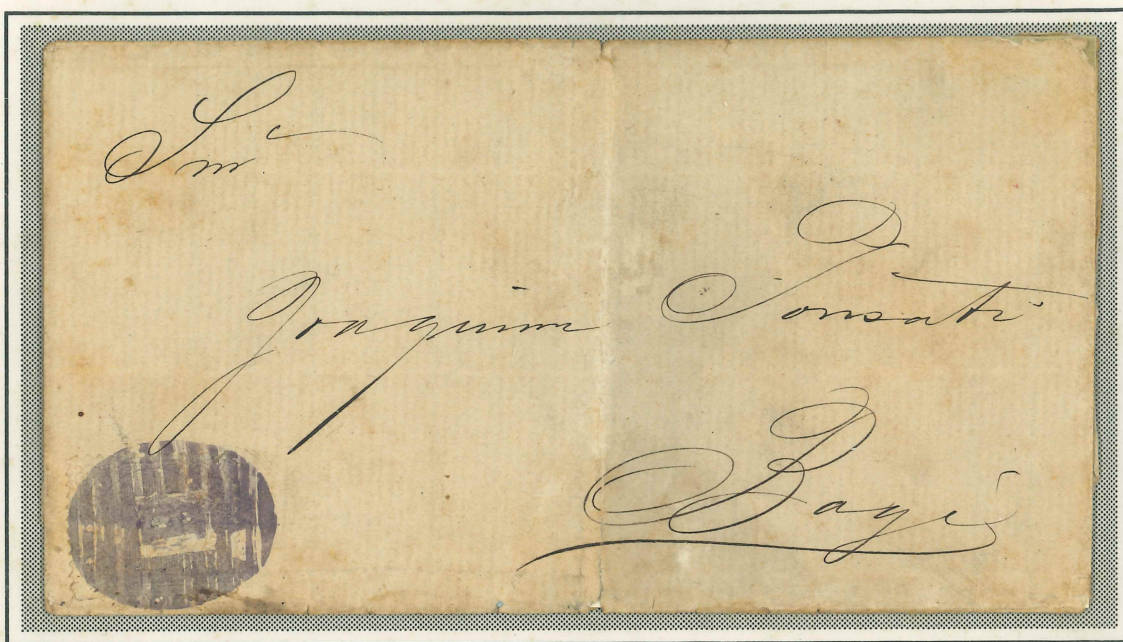 Snr
Joaquim Ponsati
Bagé